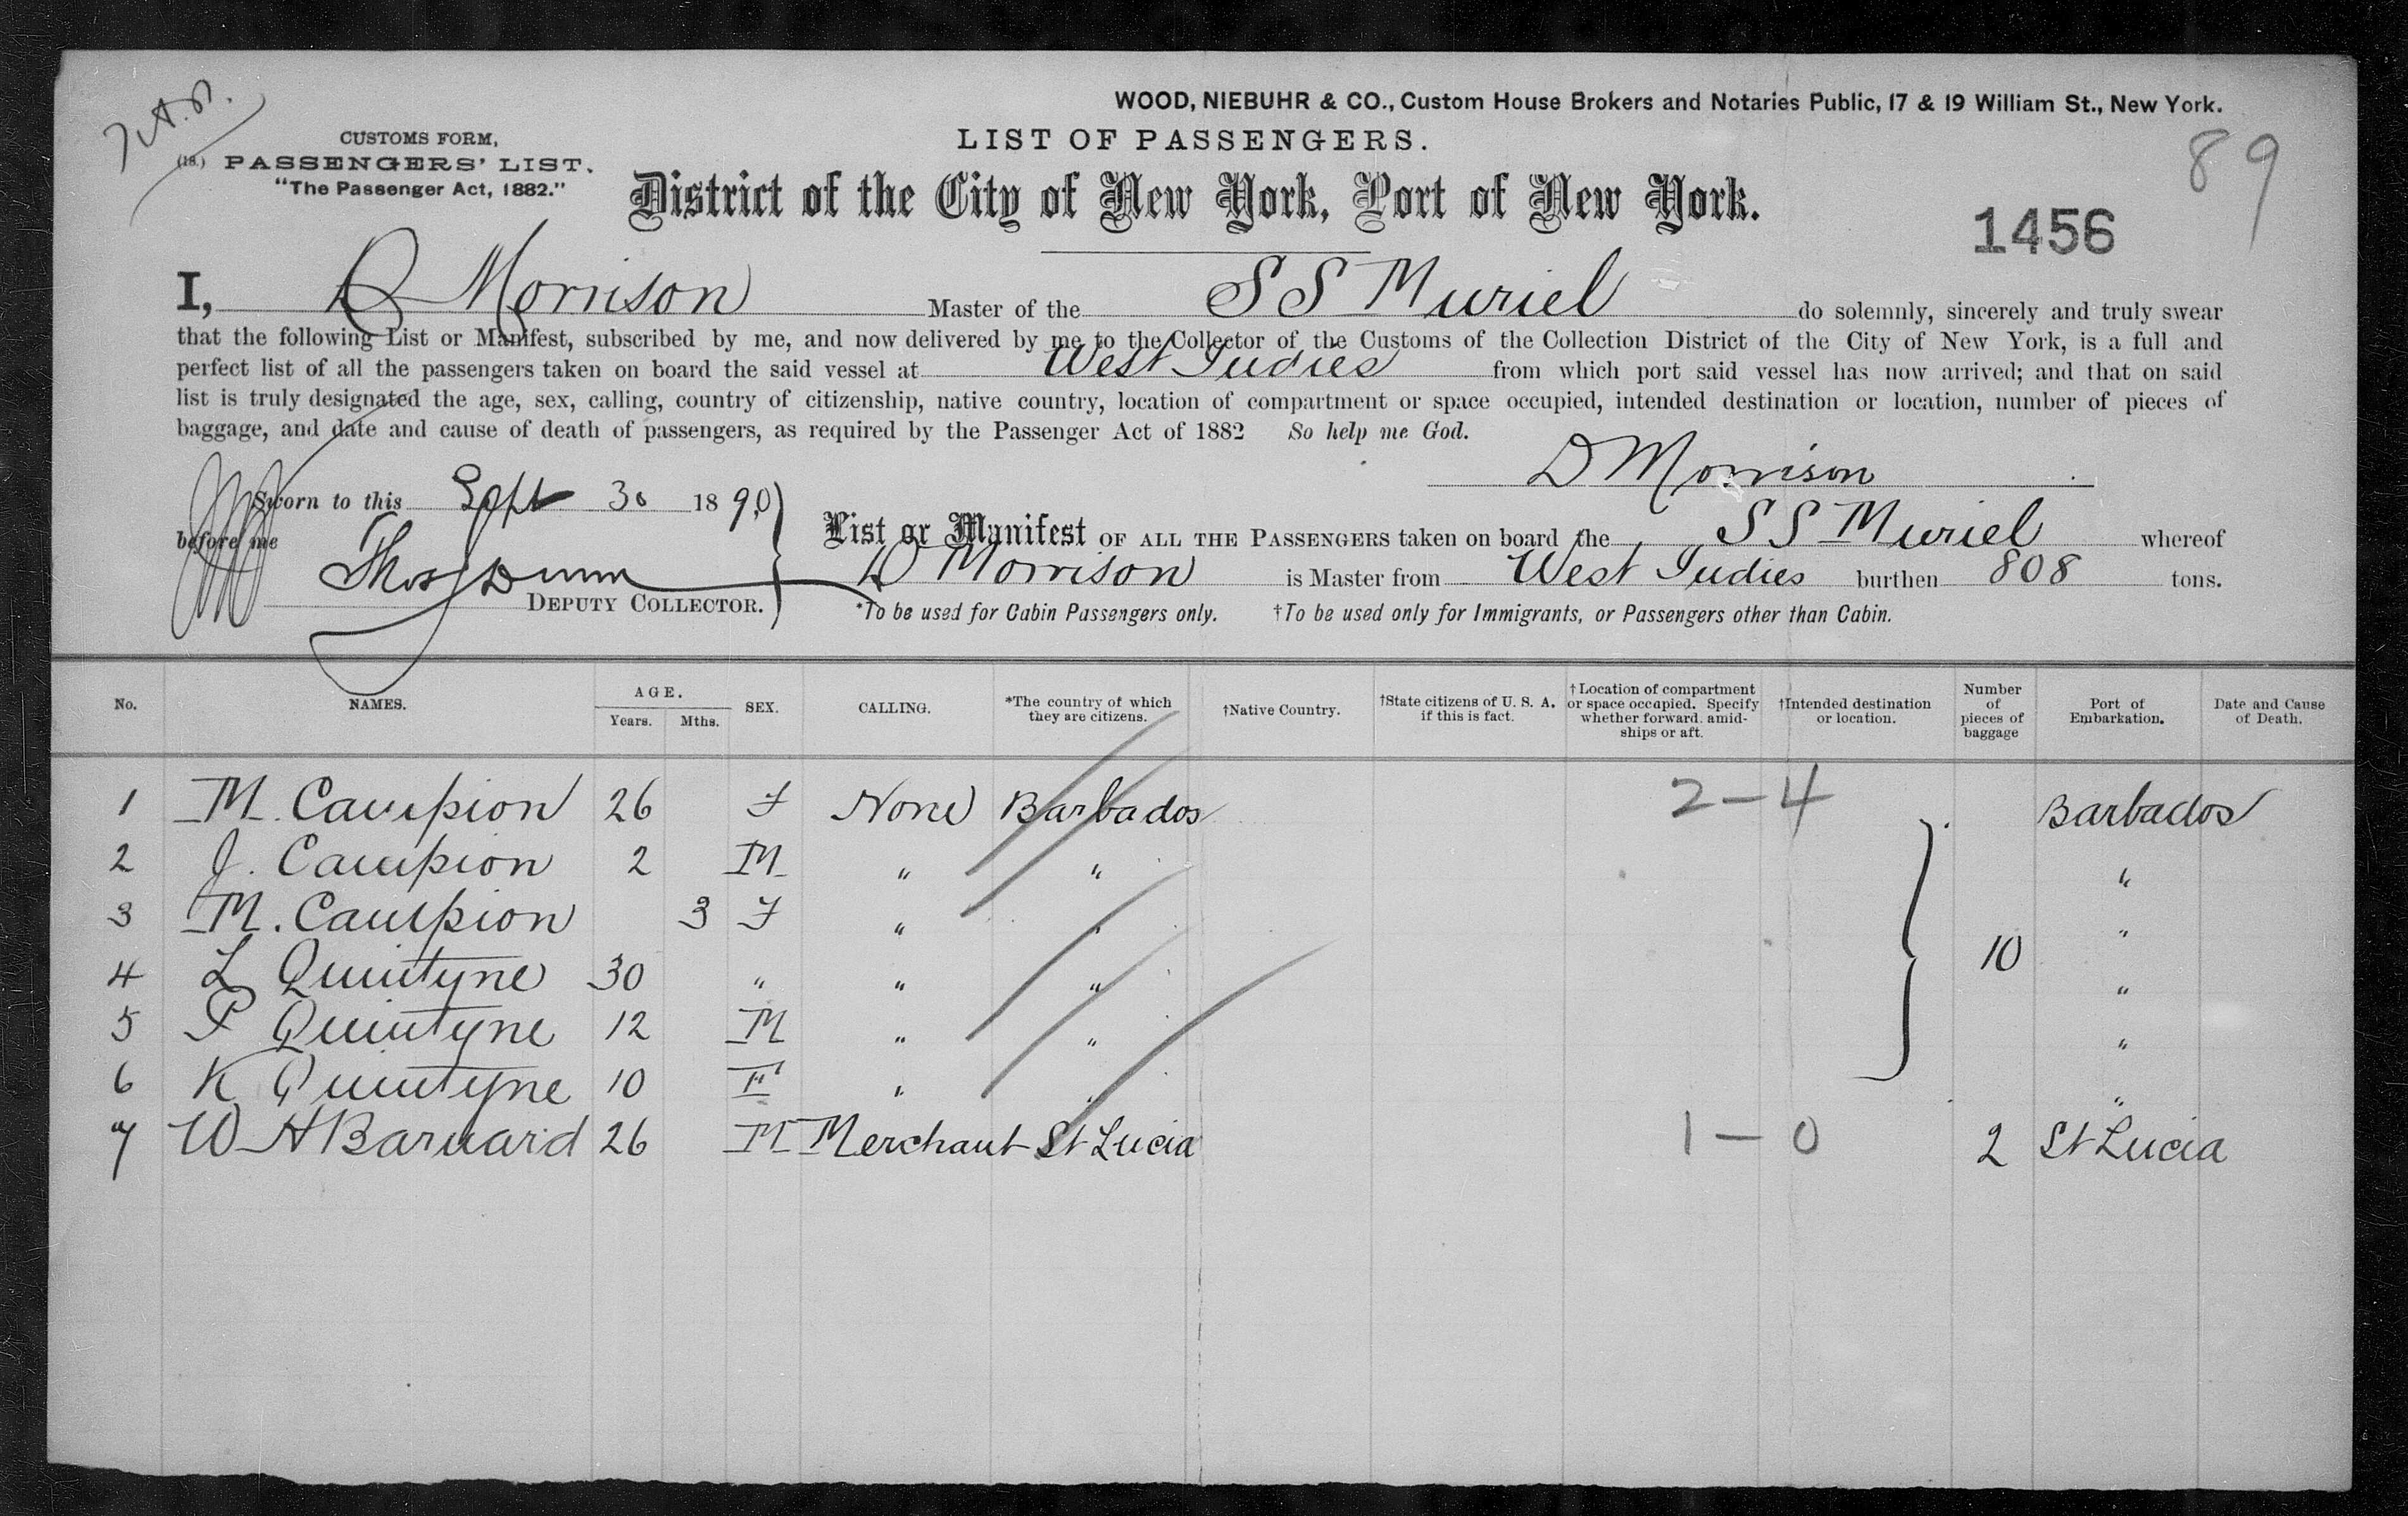 WOOD, NIEBUHR & CO., Custom House Brokers and Notaries Public, 17 & 19 William St., New York.
CUSTOMS FORM,
(18.) PASSENGERS' LIST.
"The Passenger Act, 1882."
LIST OF PASSENGERS.
89
District of the City of New York, Port of New York.
1456
I, D Morrison Master of the S S Muriel do solemnly, sincerely and truly swear
that the following List or Manifest, subscribed by me, and now delivered by me to the Collector of the Customs of the Collection District of the City of New York, is a full and
perfect list of all the passengers taken on board the said vessel at West Indies from which port said vessel has now arrived; and that on said
list is truly designated the age, sex, calling, country of citizenship, native country, location of compartment or space occupied, intended destination or location, number of pieces of
baggage, and date and cause of death of passengers, as required by the Passenger Act of 1882 So help me God.
D Morrison
Sworn to this Sept 30 1890
before me
Thos J Dunn
DEPUTY COLLECTOR.
List or Manifest OF ALL THE PASSENGERS taken on board the S S Muriel whereof
D Morrison is Master from West Indies burthen 808 tons.
*To be used for Cabin Passengers only. †To be used only for Immigrants, or Passengers other than Cabin.
No. NAMES. AGE. Years. Mths. SEX. CALLING. *The country of which they are citizens. †Native Country. †State citizens of U. S. A. if this is fact. †Location of compartment or space occupied. Specify whether forward, amid-ships or aft. †Intended destination or location. Number of pieces of baggage Port of Embarkation. Date and Cause of Death.
1 M. Campion 26 F None Barbados 2-4 Barbados
2 J. Campion 2 M " " "
3 M. Campion 3 F " " "
4 L Quintyne 30 " " " 10 "
5 P Quintyne 12 M " " "
6 K Quintyne 10 F " " "
7 W H Barnard 26 M Merchant St Lucia 1-0 2 St Lucia